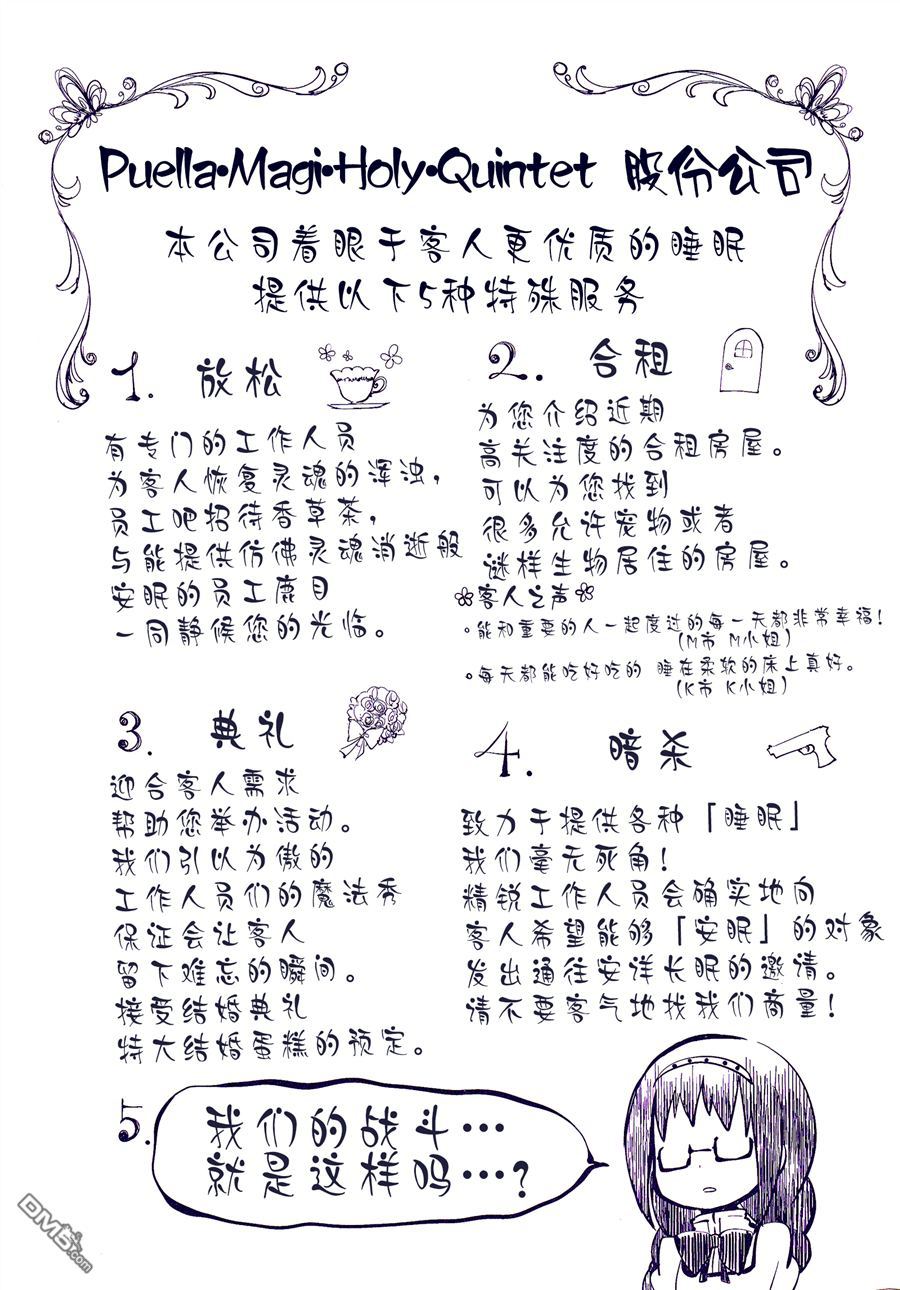 Puella·Magi·Holy·Quintet 股份公司
本公司着眼于客人更优质的睡眠
提供以下5种特殊服务
1. 放松
有专门的工作人员
为客人恢复灵魂的浑浊,
员工吧招待香草茶,
与能提供仿佛灵魂消逝般
安眠的员工鹿目
一同静候您的光临。
2. 合租
为您介绍近期
高关注度的合租房屋。
可以为您找到
很多允许宠物或者
谜样生物居住的房屋。
客人之声
。能和重要的人一起度过的每一天都非常幸福!
(M市 M小姐)
。每天都能吃好吃的 睡在柔软的床上真好。
(K市 K小姐)
3. 典礼
迎合客人需求
帮助您举办活动。
我们引以为傲的
工作人员们的魔法秀
保证会让客人
留下难忘的瞬间。
接受结婚典礼
特大结婚蛋糕的预定。
4. 暗杀
致力于提供各种「睡眠」
我们毫无死角!
精锐工作人员会确实地向
客人希望能够「安眠」的对象
发出通往安详长眠的邀请。
请不要客气地找我们商量!
5.
我们的战斗…
就是这样吗…?
DM5.com